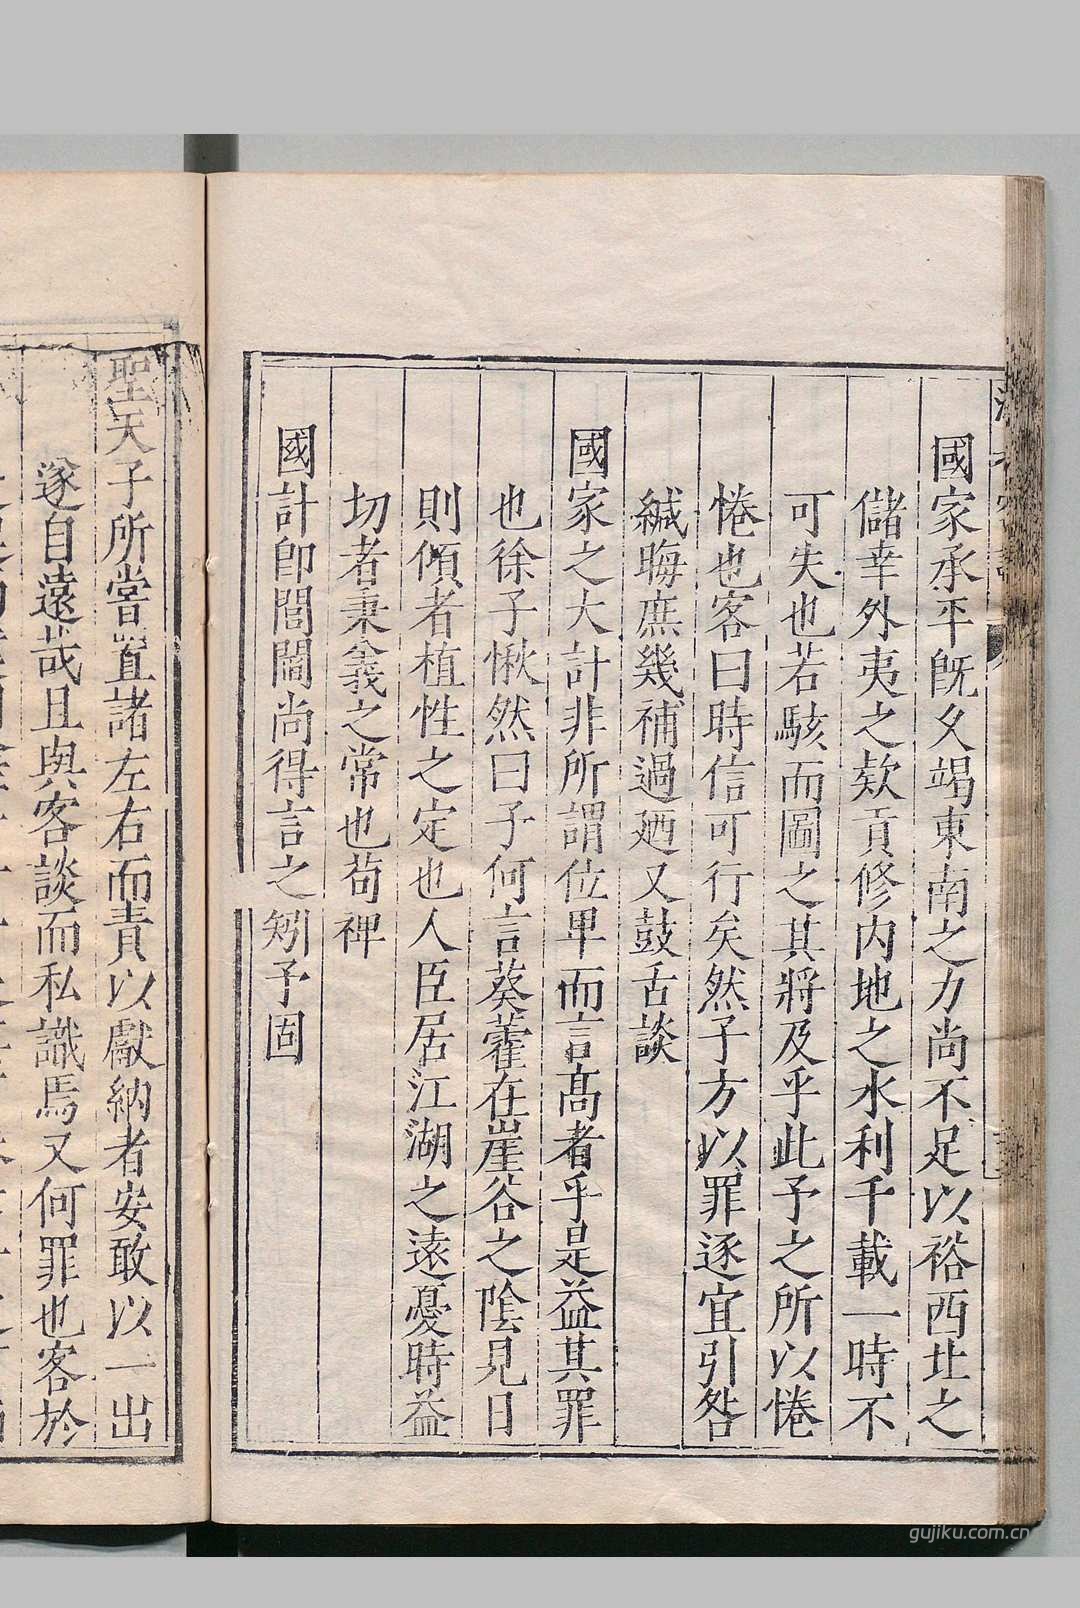 國家承平旣久竭東南之力尚不足以裕西北之
儲幸外夷之欵貢修内地之水利千載一時不
可失也若駭而圖之其將及乎此予之所以惓
惓也客曰時信可行矣然子方以罪逐宜引咎
緘晦庶幾補過廼又鼓舌談
國家之大計非所謂位卑而言高者乎是益其罪
也徐子愀然曰子何言葵藿在崖谷之陰見日
則傾者植性之定也人臣居江湖之遠憂時益
切者秉義之常也苟裨
國計卽閭閻尚得言之矧予固
聖天子所嘗置諸左右而責以獻納者安敢以一出
遂自遠哉且與客談而私識焉又何罪也客於
gujiku.com.cn